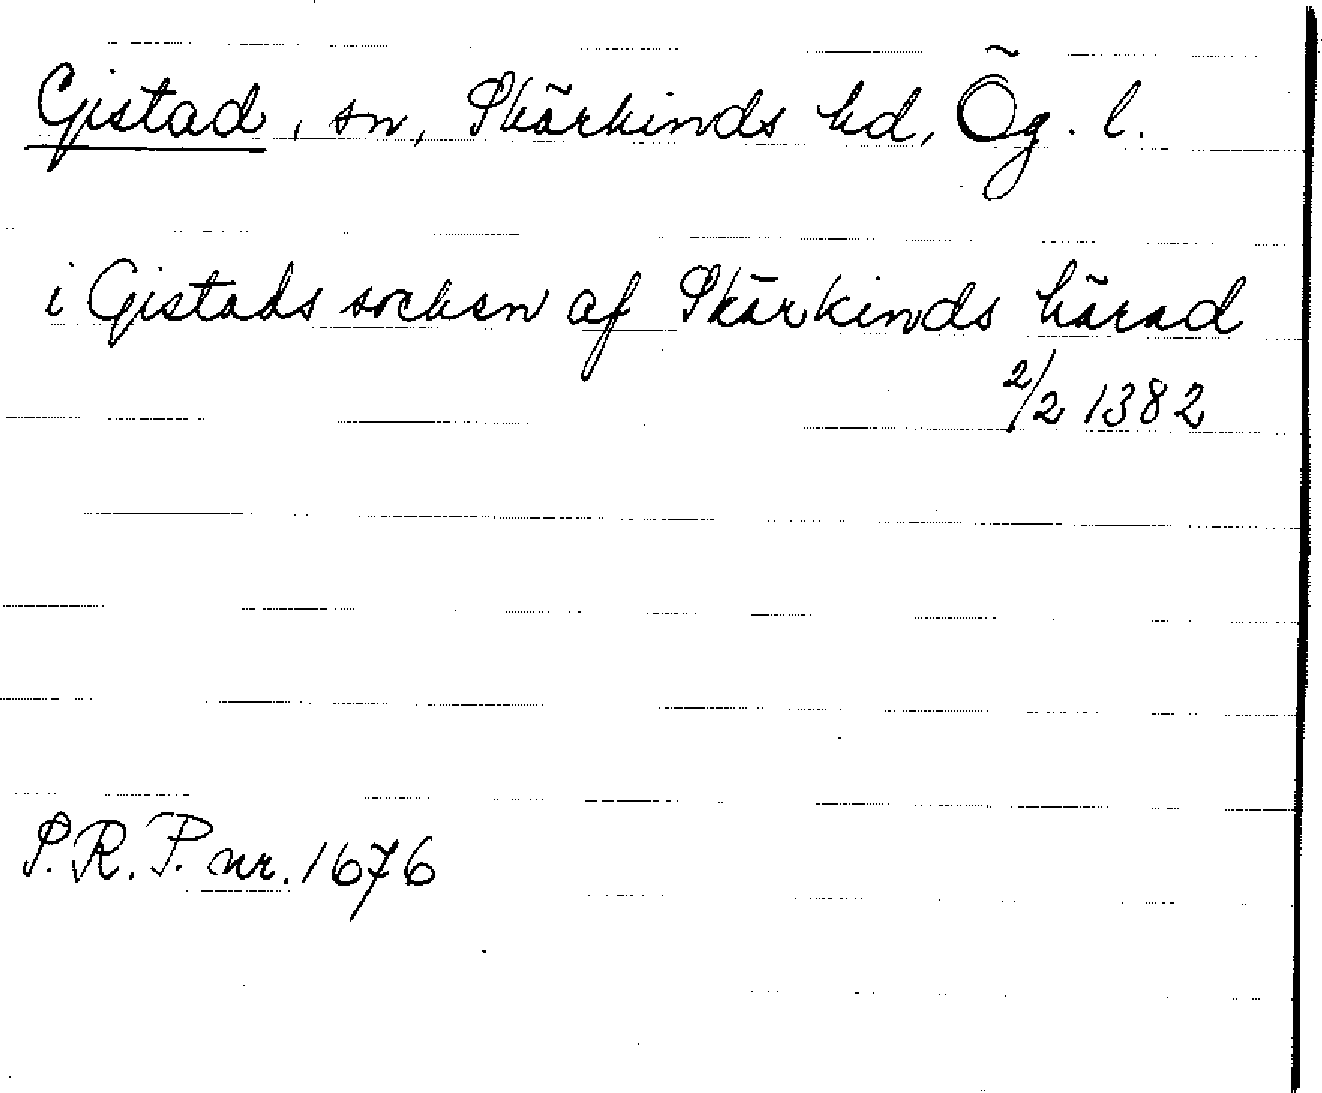 Gistad, sn, Skärkinds hd, Ög. l.
i Gistads socken af Skärkinds härad
2/2 1382
S.R.P. nr. 1676